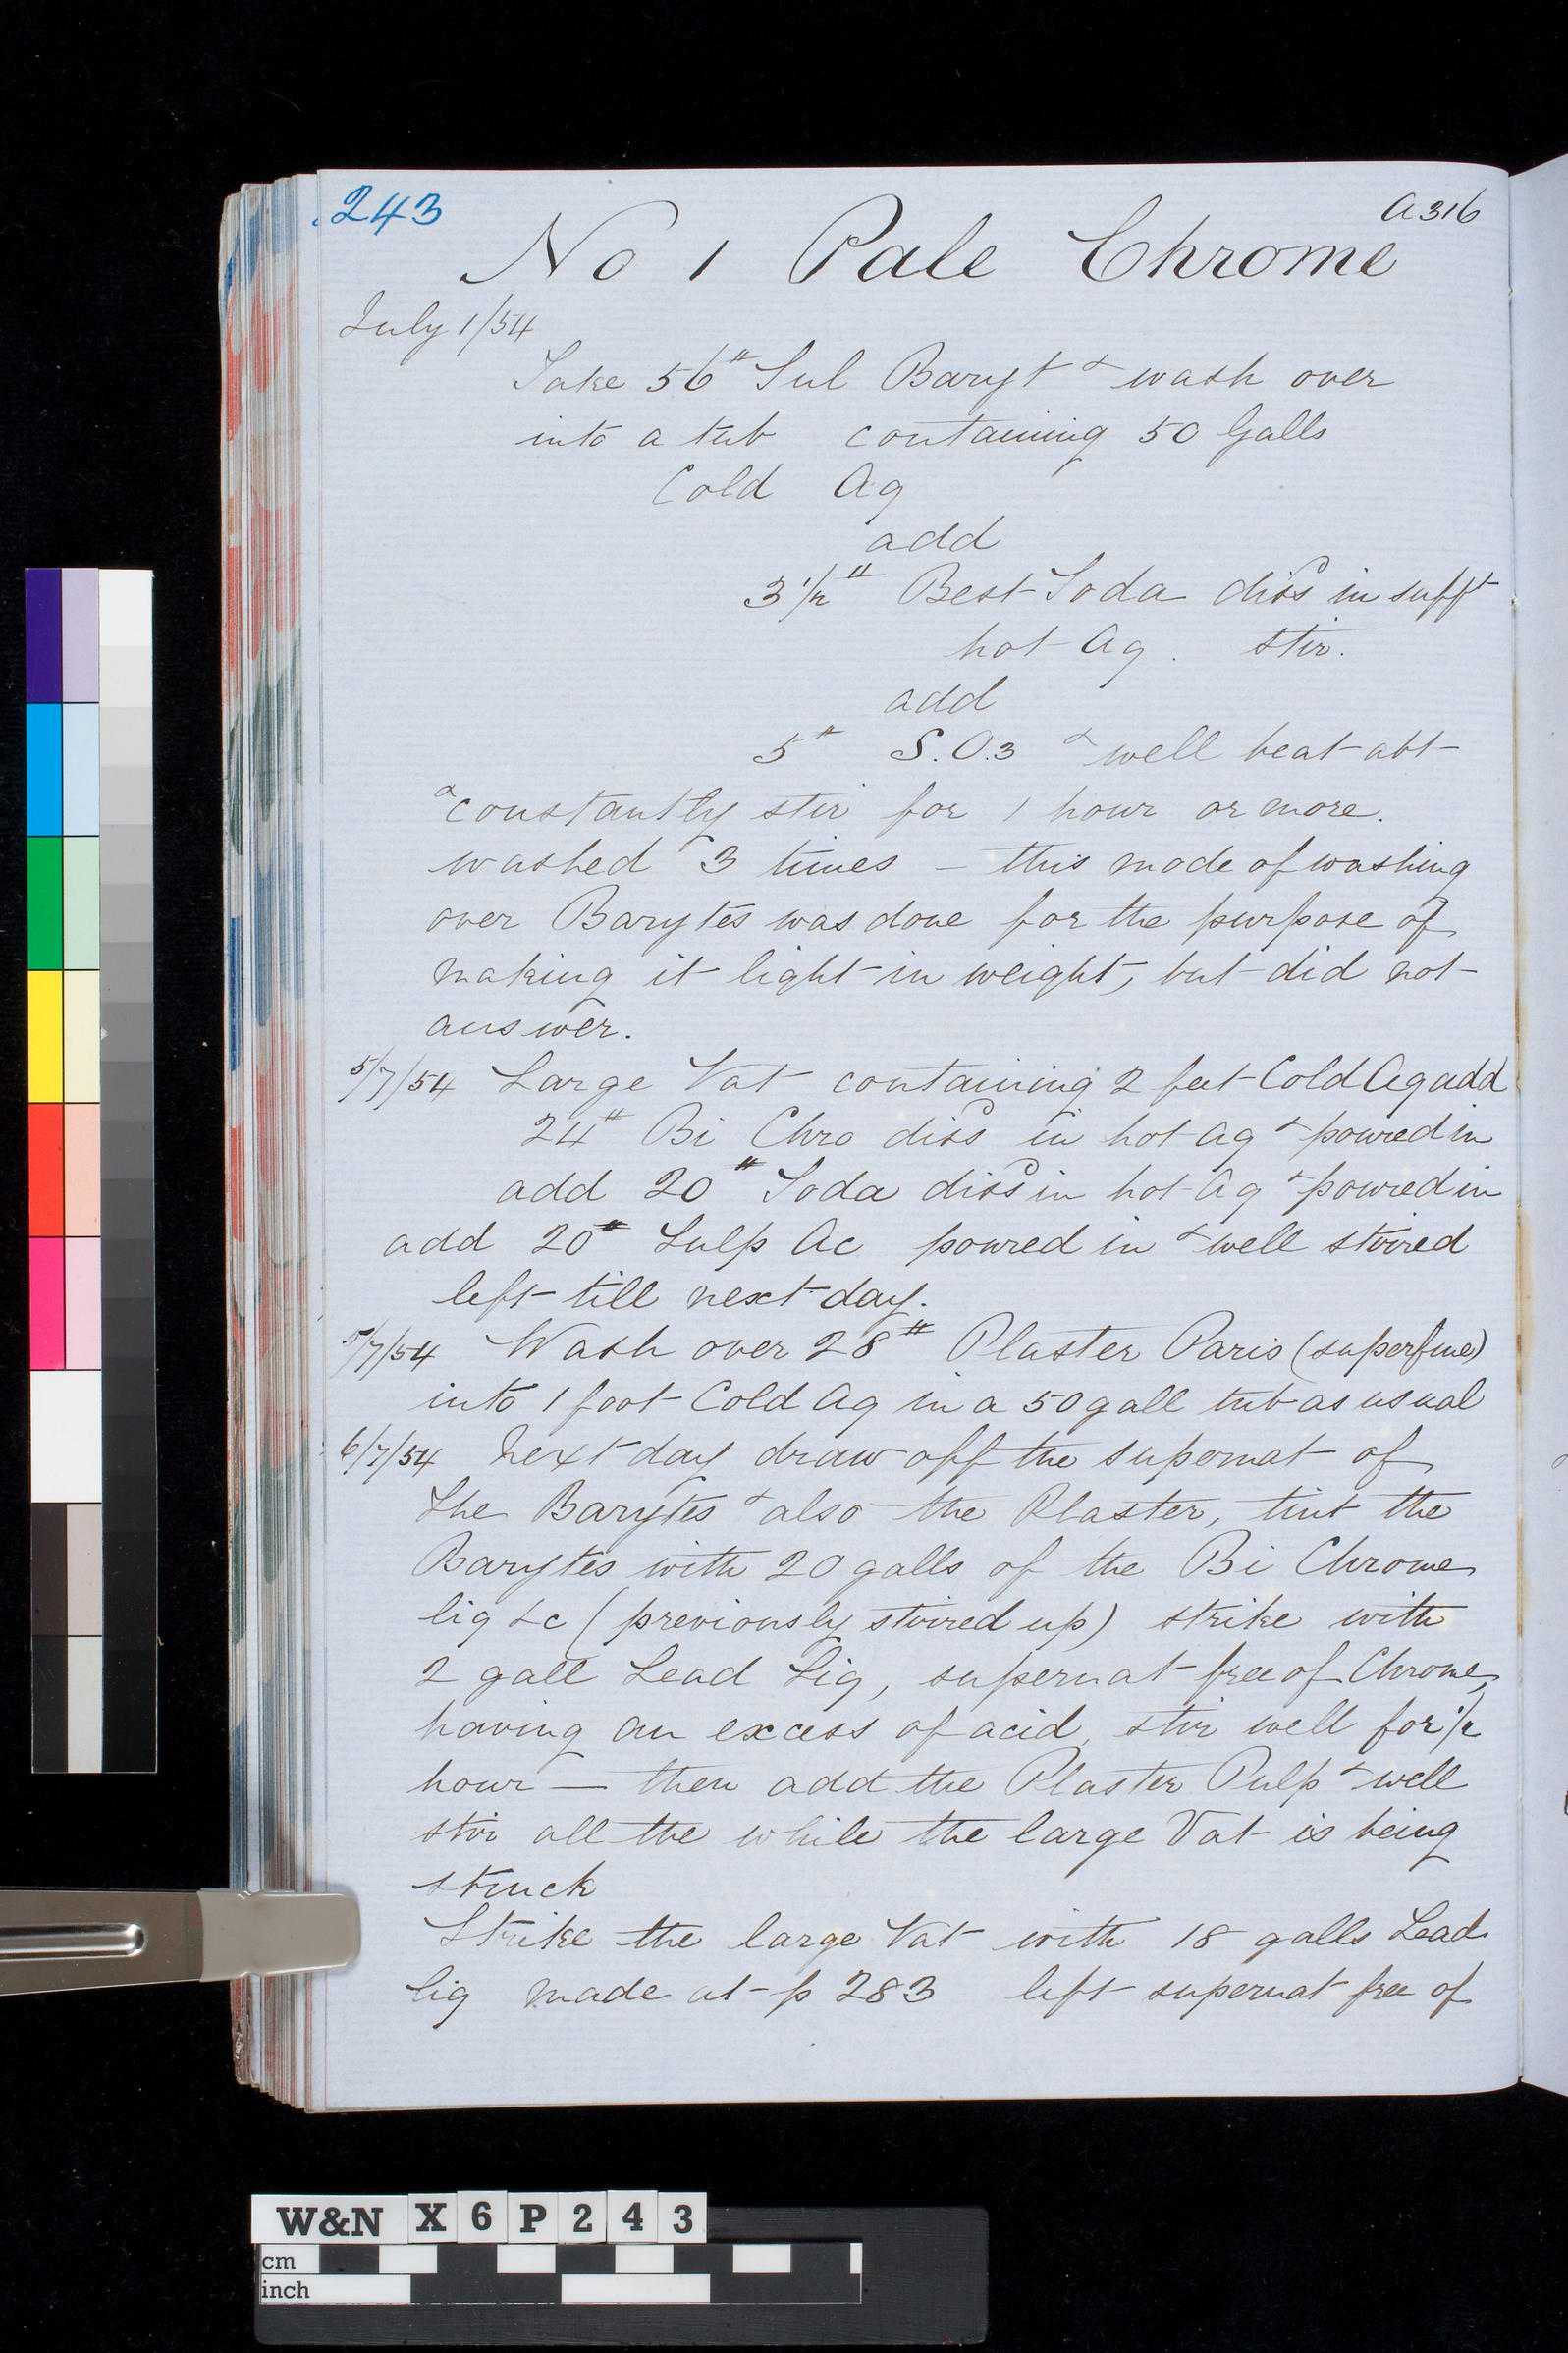 243
A 316
No 1 Pale Chrome
July 1/54
Take 56# Sul Baryt & wash over
into a tub containing 50 Galls
Cold Aq
add
3 1/2# Best Soda dissd in sufft
hot Aq. stir.
add
5# S.O.3 & well beat abt
& constantly stir for 1 hour or more.
washed 3 times – this mode of washing
over Barytes was done for the purpose of
making it light in weight, but did not
answer.
5/7/54 Large Vat containing 2 feet Cold Aq add
24# Bi Chro dissd in hot Aq & poured in
add 20# Soda dissd in hot Aq & poured in
add 20# Sulp Ac poured in & well stirred
left till next day.
5/7/54 Wash over 28# Plaster Paris (superfine)
into 1 foot Cold Aq in a 50 gall tub as usual
6/7/54 Next day draw off the supernat of
the Barytes & also the Plaster, tint the
Barytes with 20 galls of the Bi Chrome
liq &c (previously stirred up) strike with
2 gall Lead Liq, supernat free of Chrome,
having an excess of acid, stir well for 1/2
hour — then add the Plaster Pulp & well
stir all the while the large Vat is being
struck
Strike the large Vat with 18 galls Lead
liq made at p 283 left supernat free of
W&N X 6 P 2 4 3
cm
inch